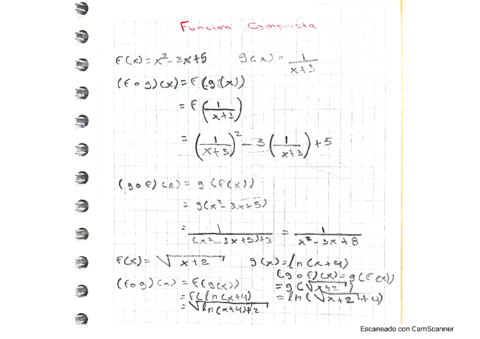 Funcion Compuesta
F(x) = x² - 3x + 5    g(x) = 1/(x+3)
(F o g)(x) = F(g(x))
= F(1/(x+3))
= (1/(x+3))² - 3(1/(x+3)) + 5
(g o F)(x) = g(F(x))
= g(x² - 3x + 5)
= 1/((x² - 3x + 5) + 3) = 1/(x² - 3x + 8)
F(x) = √(x+2)    g(x) = ln(x+4)
(F o g)(x) = F(g(x))    (g o F)(x) = g(F(x))
= F(ln(x+4))    = g(√(x+2))
= √(ln(x+4)+2)    = ln(√(x+2) + 4)
Escaneado con CamScanner